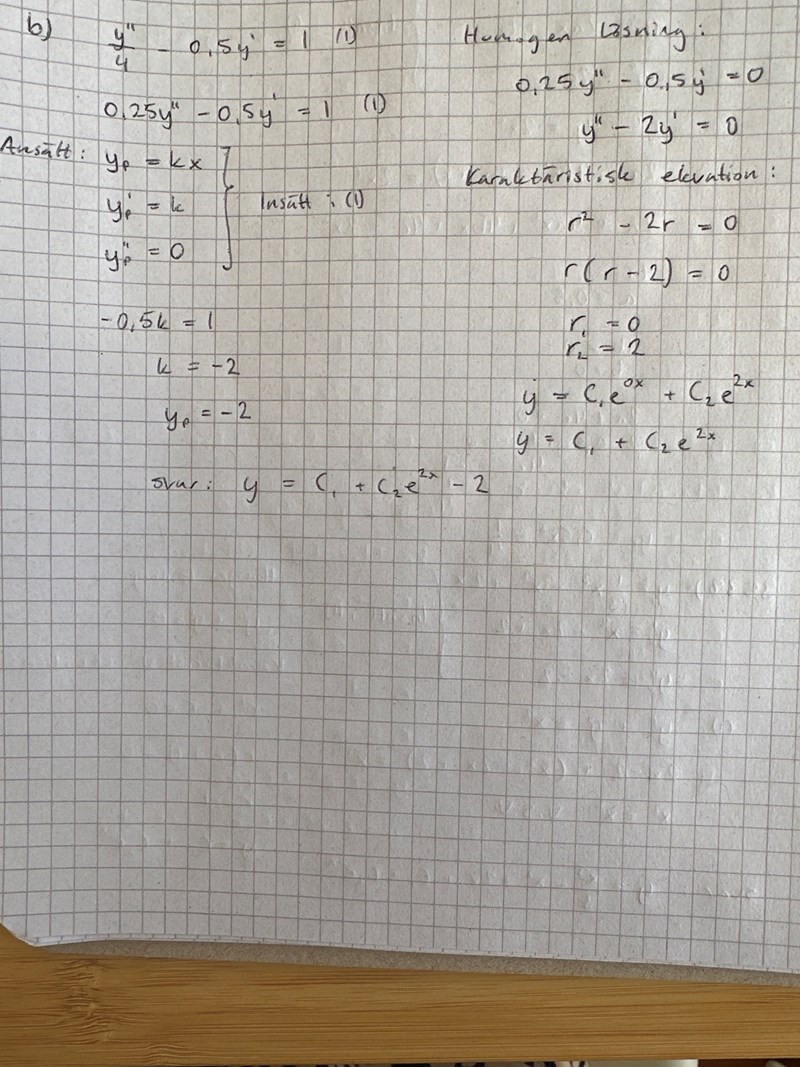 b)
y''/4 - 0,5y' = 1 (1)
0,25y'' - 0,5y' = 1 (1)
Ansätt: yₚ = kx
yₚ' = k
yₚ'' = 0
Insätt i (1)
-0,5k = 1
k = -2
yₚ = -2
Homogen lösning:
0,25y'' - 0,5y' = 0
y'' - 2y' = 0
Karaktäristisk ekvation:
r² - 2r = 0
r(r - 2) = 0
r₁ = 0
r₂ = 2
y = C₁e^0x + C₂e^2x
y = C₁ + C₂e^2x
svar: y = C₁ + C₂e^2x - 2